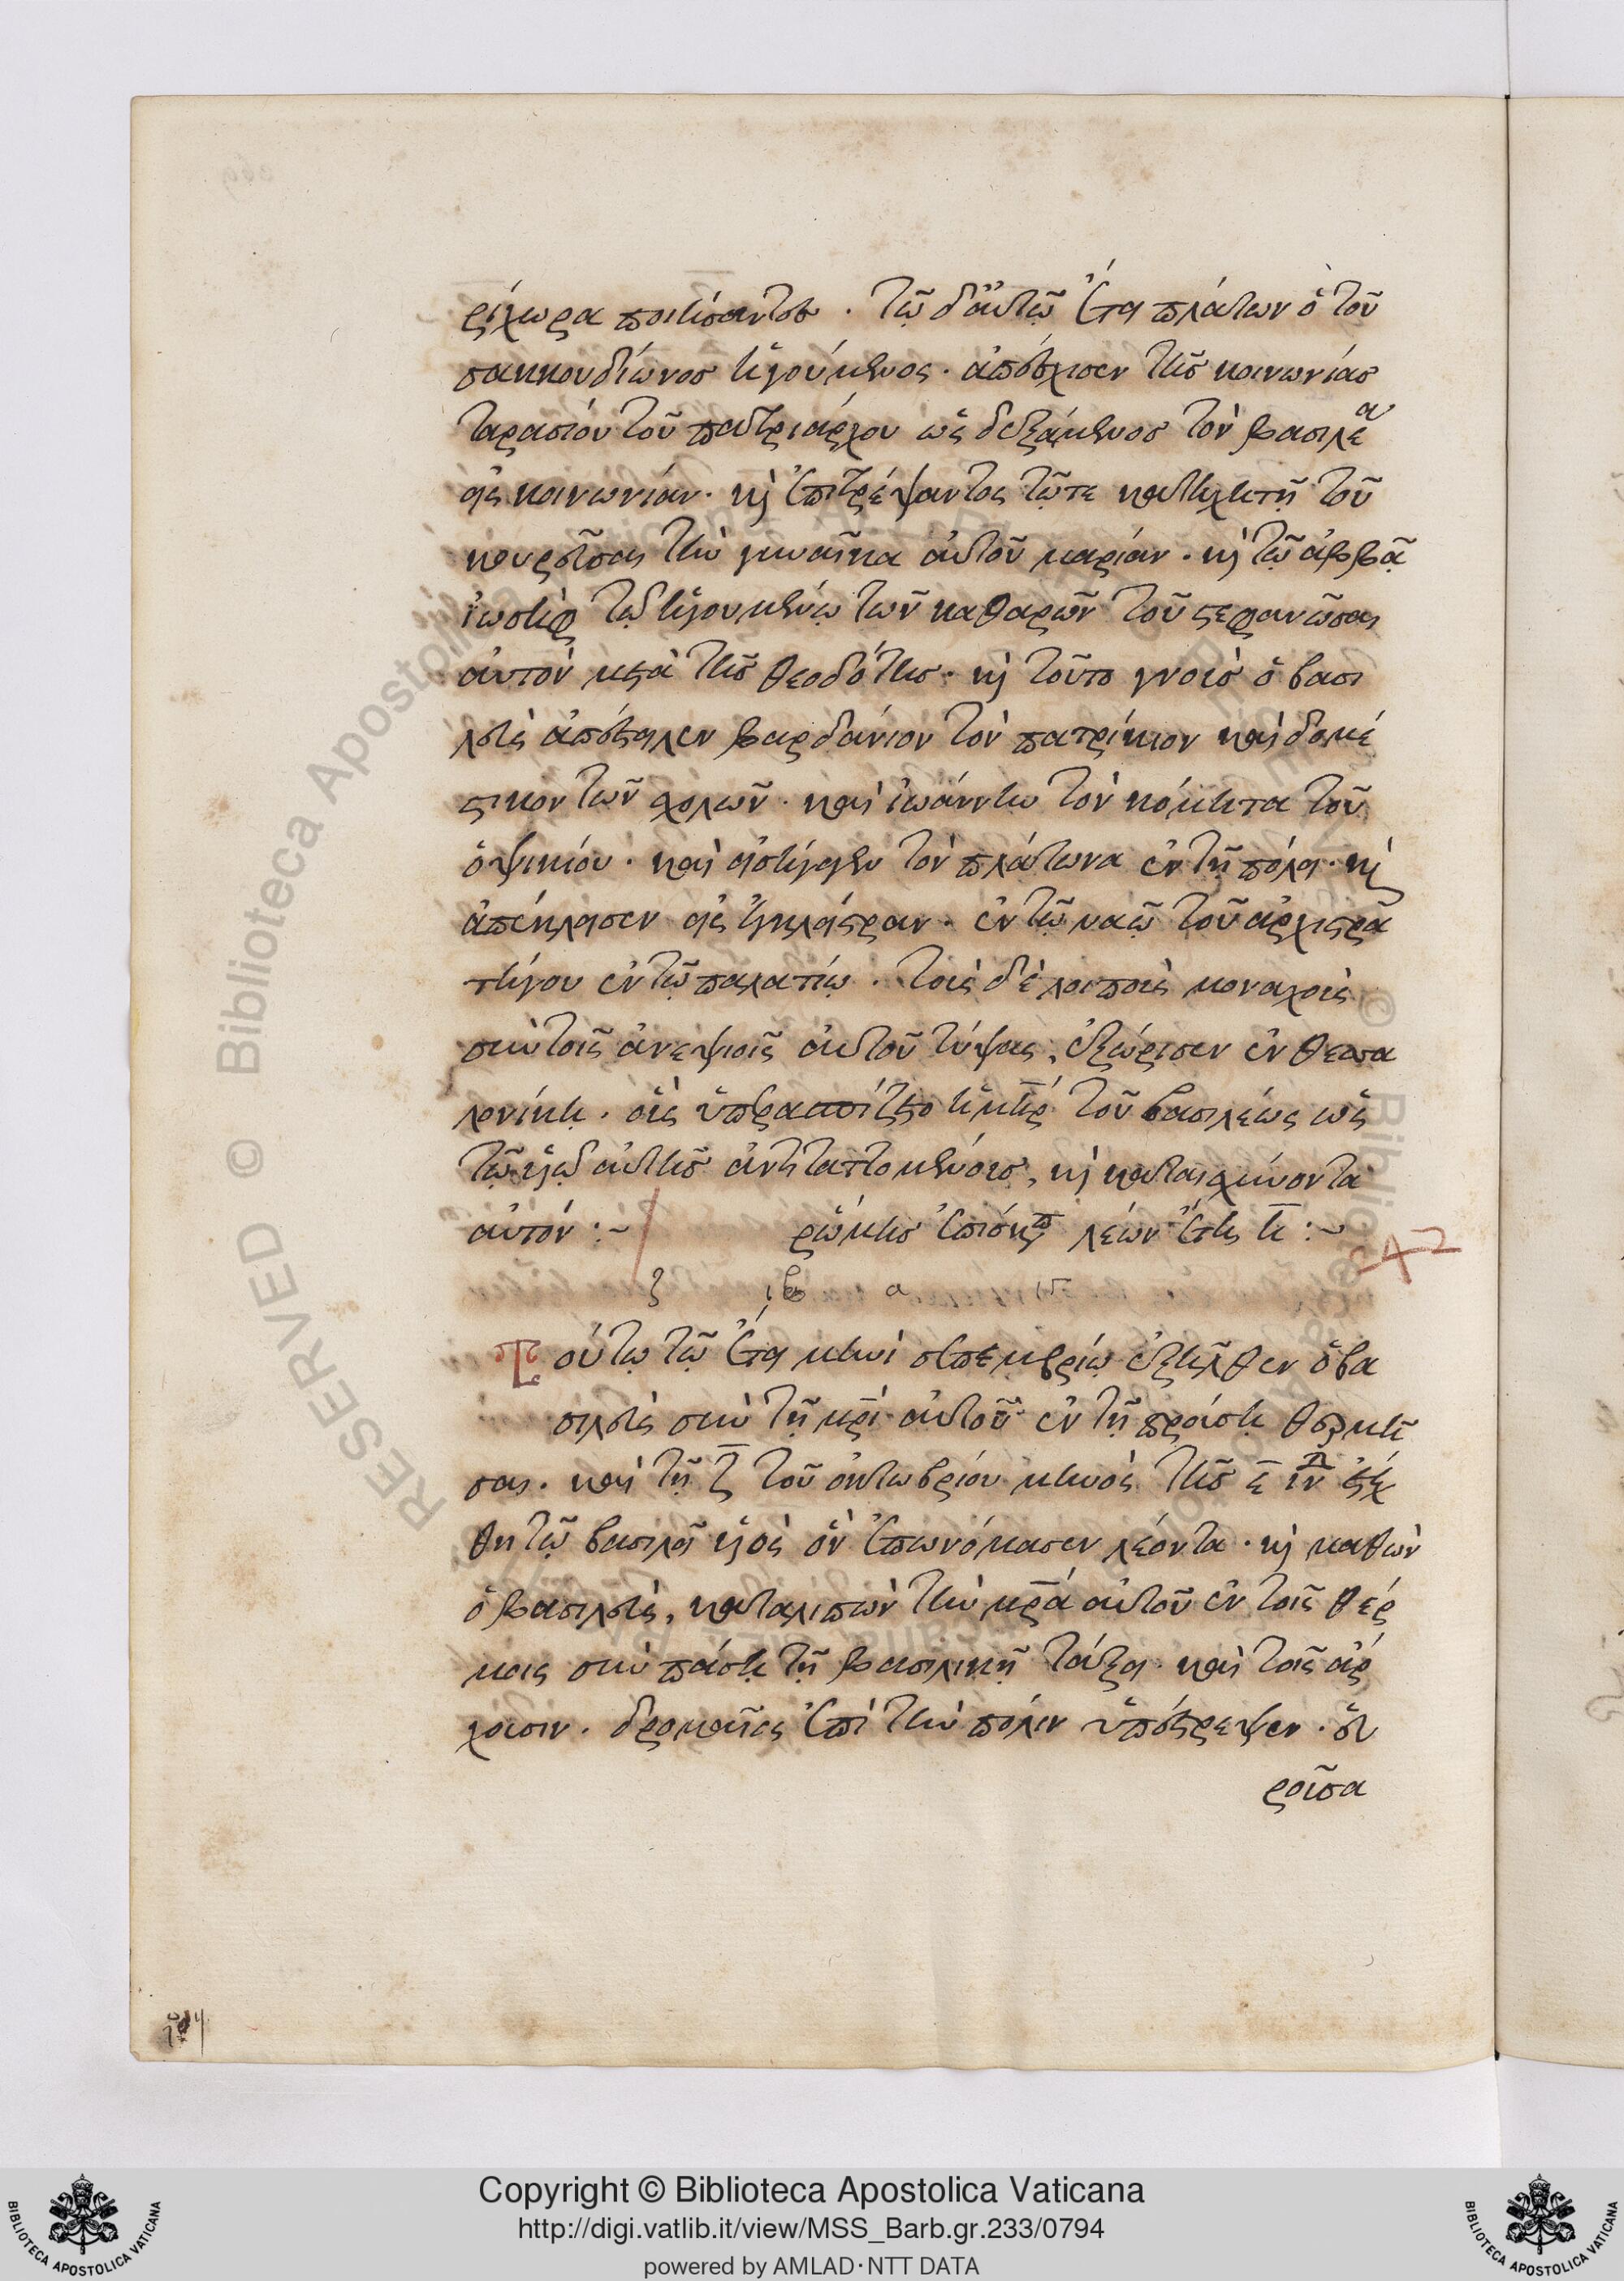 ρίχωρα ποιήσαντος. τῶ δ' αὐτῶ ἔτει πλάτων ὁ τοῦ
σακκουδίωνος ἡγούμενος. ἀπέσχισεν τῆς κοινωνίας
ταρασίου τοῦ πατριάρχου ὡς δεξάμενος τὸν βασιλέα
εἰς κοινωνίαν. κὶ ἐπιτρέψαντος τῷ τε κατηχητῇ τοῦ
κουρεῦσαι τὴν γυναῖκα αὐτοῦ μαρίαν. κὶ τῷ ἀββᾷ
ἰωσὴφ τῷ ἡγουμένῳ τῶν καθαρῶν τοῦ στεφανῶσαι
αὐτὸν μετὰ τῆς θεοδότης. κὶ τοῦτο γνοὺς ὁ βασι
λεὺς ἀπέστειλεν βαρδάνιον τὸν πατρίκιον καὶ δομέ
στικον τῶν σχολῶν. καὶ ἰωάννην τὸν κόμητα τοῦ
ὀψικίου. καὶ εἰσήγαγεν τὸν πλάτωνα ἐν τῇ πόλει. κὶ
ἀπέκλεισεν εἰς ἐγκλείστραν. ἐν τῷ ναῷ τοῦ ἀρχιστρα
τήγου ἐν τῷ παλατίῳ. τοὺς δὲ λοιποὺς μοναχοὺς
σὺν τοῖς ἀνεψιοῖς αὐτοῦ τύψας, ἐξώρισεν ἐν θεσσα
λονίκῃ. οὓς ὑπερασπίζετο ἡ μηρ τοῦ βασιλέως ὡς
τῷ υἱῷ αὐτῆς ἀντιταττομένους, κὶ καταισχύνοντα
αὐτόν :~ ῥώμης ἐπίσκοπ λέων ἔτη η :~
ζ ιβ α ιϛ
Τούτῳ τῷ ἔτει μηνὶ σεπτεμβρίῳ ἐξῆλθεν ὁ βα
σιλεὺς σὺν τῇ μρὶ αὐτοῦ ἐν τῇ προύσῃ θερμεῦ
σαι. καὶ τῇ ζ τοῦ ὀκτωβρίου μηνὸς τῆς ε ἰνδ ἐτέχ
θη τῷ βασιλεῖ υἱὸς ὃν ἐπωνόμασεν λέοντα. κὶ μαθὼν
ὁ βασιλεὺς, καταλιπὼν τὴν μρα αὐτοῦ ἐν τοῖς θέρ
μοις σὺν πάσῃ τῇ βασιλικῇ τάξει. καὶ τοῖς ἄρ
χουσιν. δρομαῖος ἐπὶ τὴν πόλιν ὑπέστρεψεν. εὑ
ροῦσα
Copyright © Biblioteca Apostolica Vaticana
http://digi.vatlib.it/view/MSS_Barb.gr.233/0794
powered by AMLAD·NTT DATA